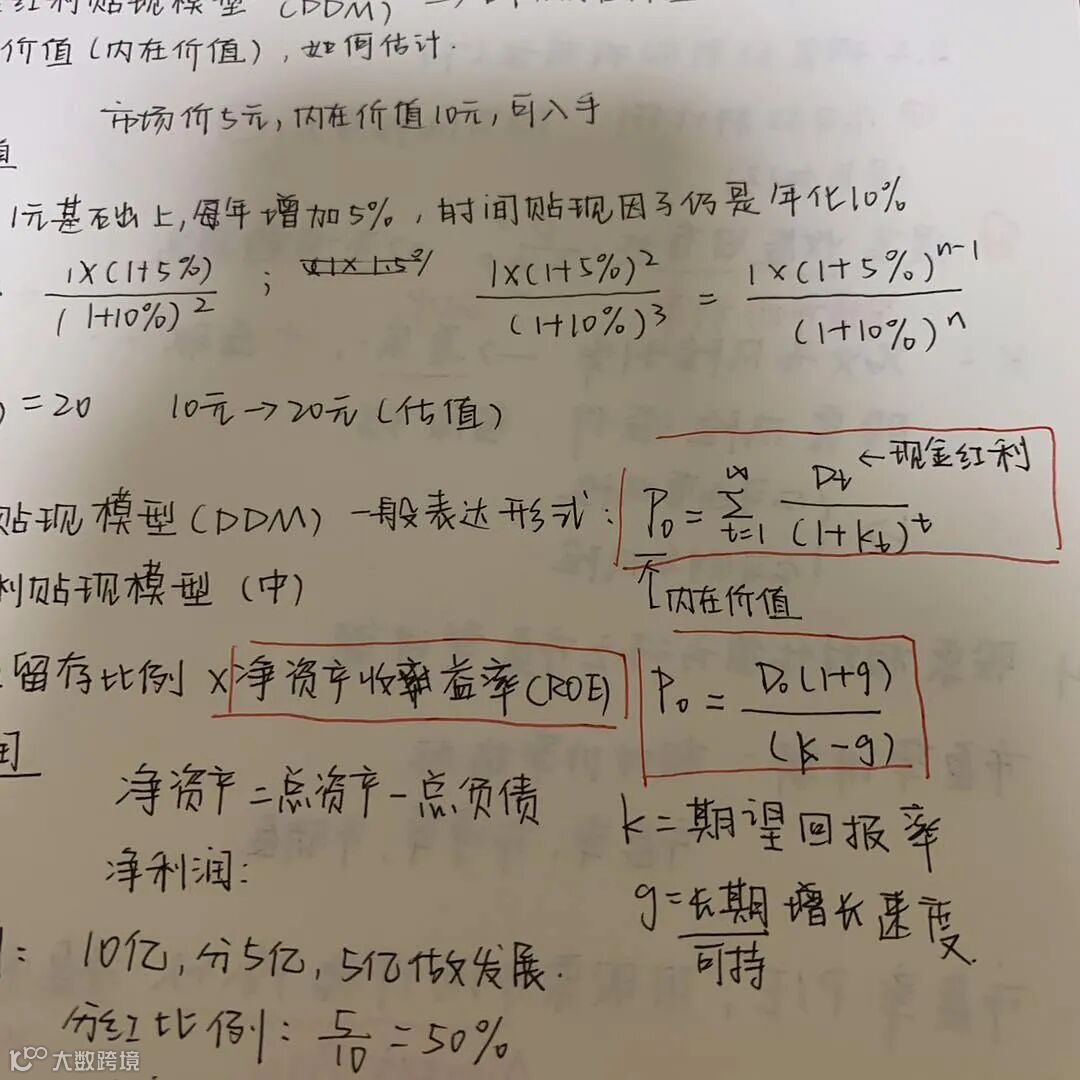 红利贴现模型 (DDM)
价值(内在价值),如何估计.
市场价5元,内在价值10元,可入手
值
1元基础上,每年增加5%,时间贴现因子仍是年化10%
1×(1+5%)/(1+10%)² ; 1×(1+5%)²/(1+10%)³ = 1×(1+5%)ⁿ⁻¹/(1+10%)ⁿ
) = 20 10元→20元(估值)
贴现模型(DDM)一般表达形式: P₀ = ∑_{t=1}^{∞} Dt/(1+kt)^t ←现金红利
利贴现模型(中) 内在价值
留存比例 × 净资产收益率(ROE) P₀ = D₀(1+g)/(k-g)
润
净资产=总资产-总负债
k=期望回报率
净利润:
g=长期增长速度.
可持
: 10亿,分5亿,5亿做发展.
分红比例: 5/10 = 50%
大数跨境